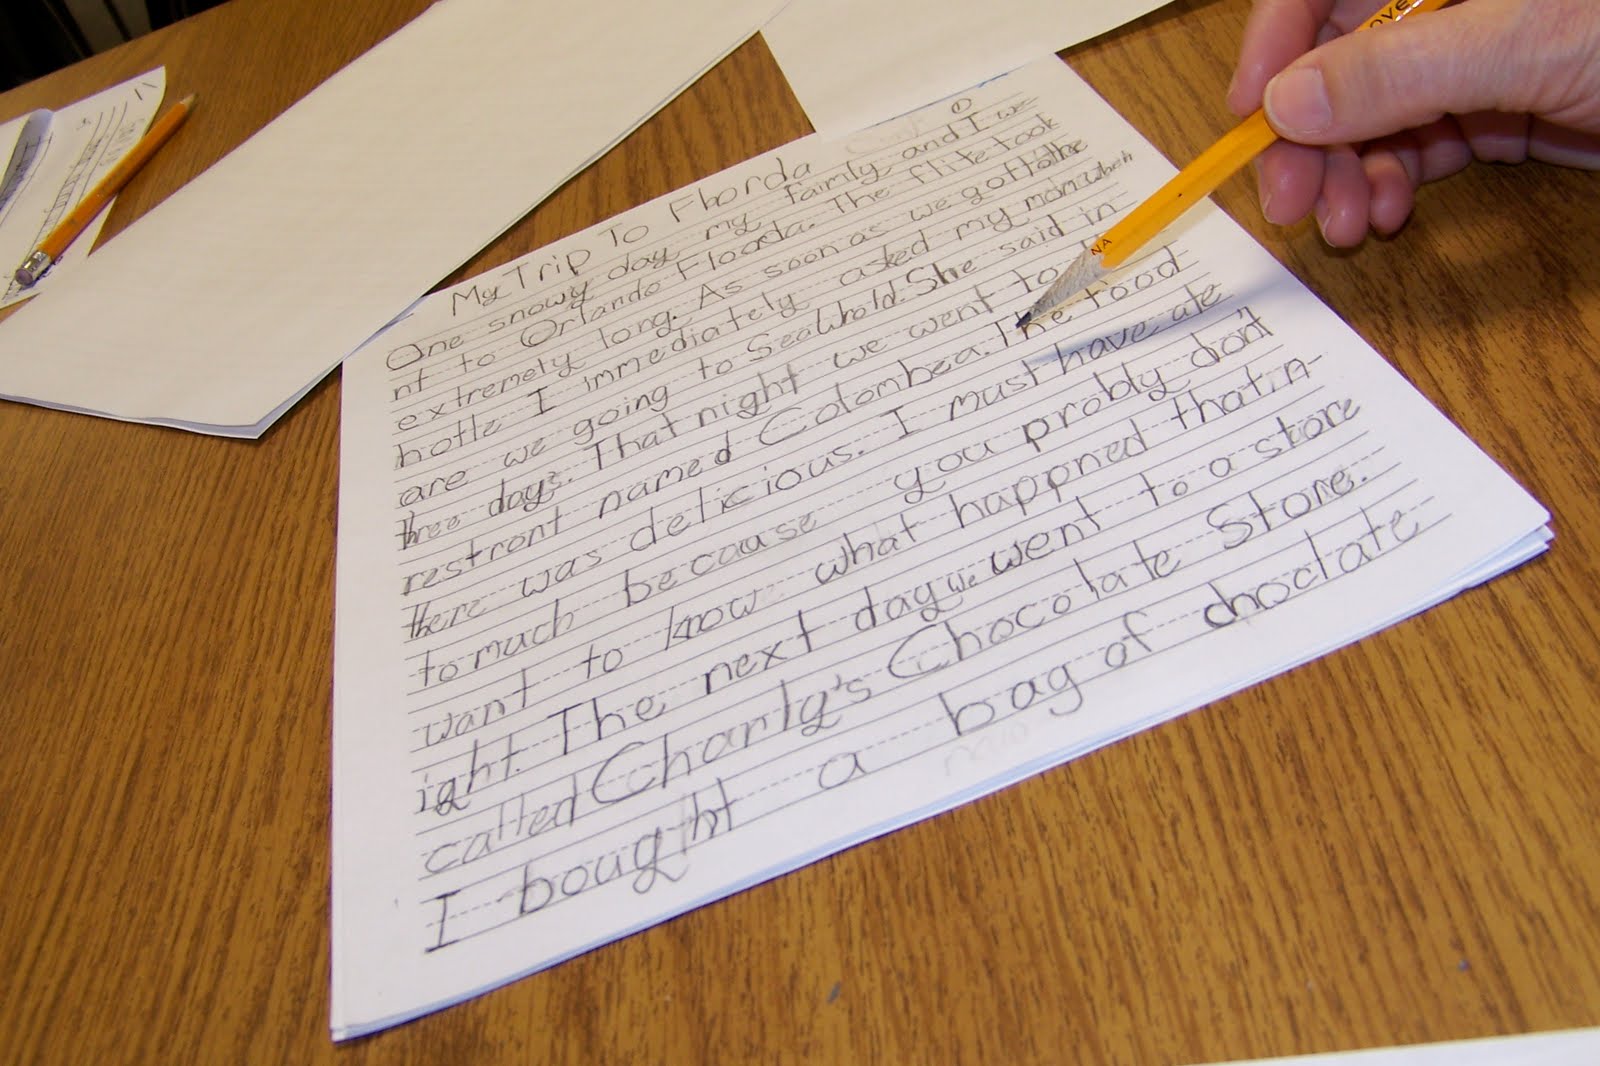 ①
My Trip To Florda
One snowy day my faimly and I we-
nt to Orlando Floorda. The flite took
extremety long. As soon as we got to the
hotle I immediately asked my mom when
are we going to SeaWhold. She said in
three days. That night we went to
restront named Colombea. The food
there was delicious. I must have ate
to much because you probly don't
want to know what happned that n-
ight. The next day we went to a store
called Charly's Chocolate Store.
I bought a bag of choclate
NA